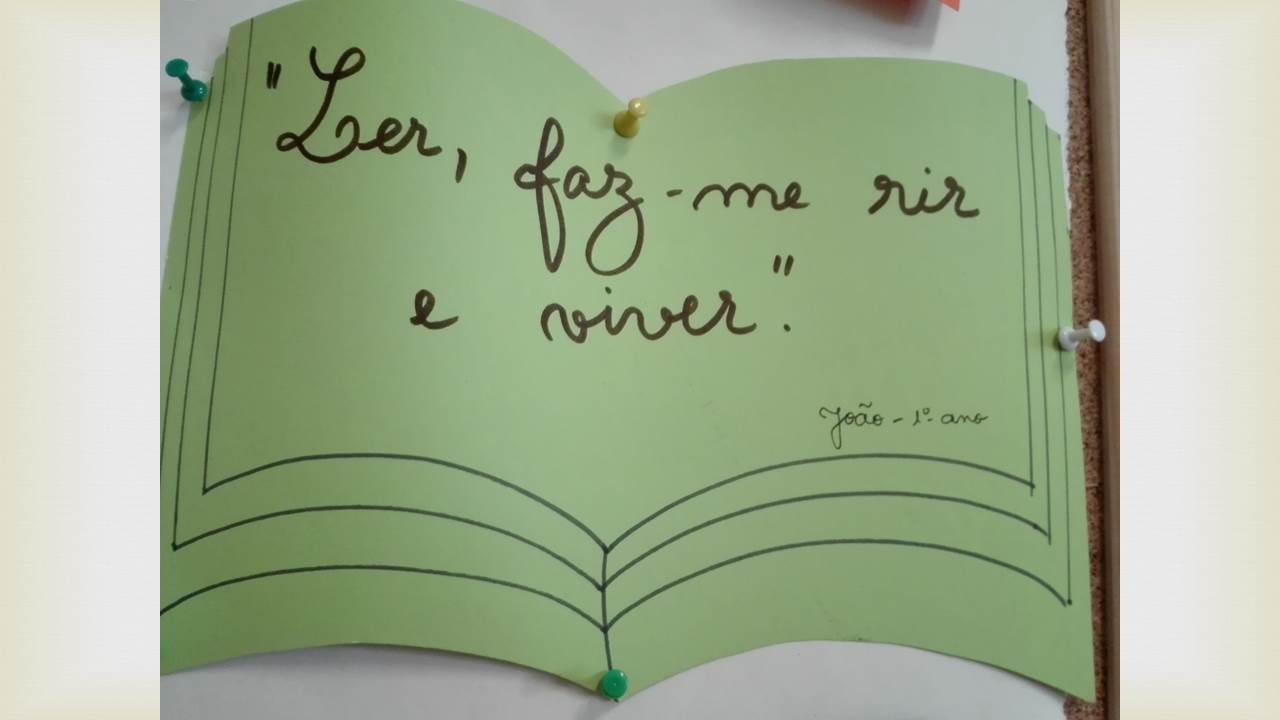 "Ler, faz-me rir
e viver".
João - 1º ano